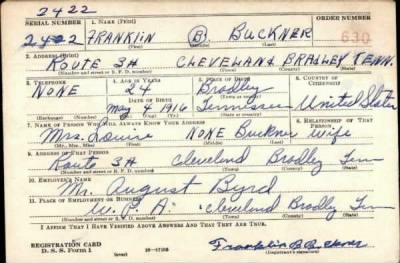 2422
SERIAL NUMBER 1. NAME (Print) ORDER NUMBER
2422 FRANKLIN B. BUCKNER 630
(First) (Middle) (Last)
2. ADDRESS (Print)
ROUTE 3A CLEVELAND BRADLEY TENN.
(Number and street or R. F. D. number) (Town) (County) (State)
3. TELEPHONE 4. AGE IN YEARS 5. PLACE OF BIRTH 6. COUNTRY OF CITIZENSHIP
NONE 24 Bradley
DATE OF BIRTH (Town or county)
May 4 1916 Tennessee United States
(Exchange) (Number) (Mo.) (Day) (Yr.) (State or country)
7. NAME OF PERSON WHO WILL ALWAYS KNOW YOUR ADDRESS 8. RELATIONSHIP OF THAT PERSON
Mrs. Louise NONE Buckner wife
(Mr., Mrs., Miss) (First) (Middle) (Last)
9. ADDRESS OF THAT PERSON
Route 3A Cleveland Bradley Tenn
(Number and street or R. F. D. number) (Town) (County) (State)
10. EMPLOYER'S NAME
Mr. August Byrd
11. PLACE OF EMPLOYMENT OR BUSINESS
W. P. A. Cleveland Bradley Tenn
(Number and street or R. F. D. number) (Town) (County) (State)
I AFFIRM THAT I HAVE VERIFIED ABOVE ANSWERS AND THAT THEY ARE TRUE.
REGISTRATION CARD
D. S. S. Form 1 Franklin B. Buckner
(Registrant's signature)